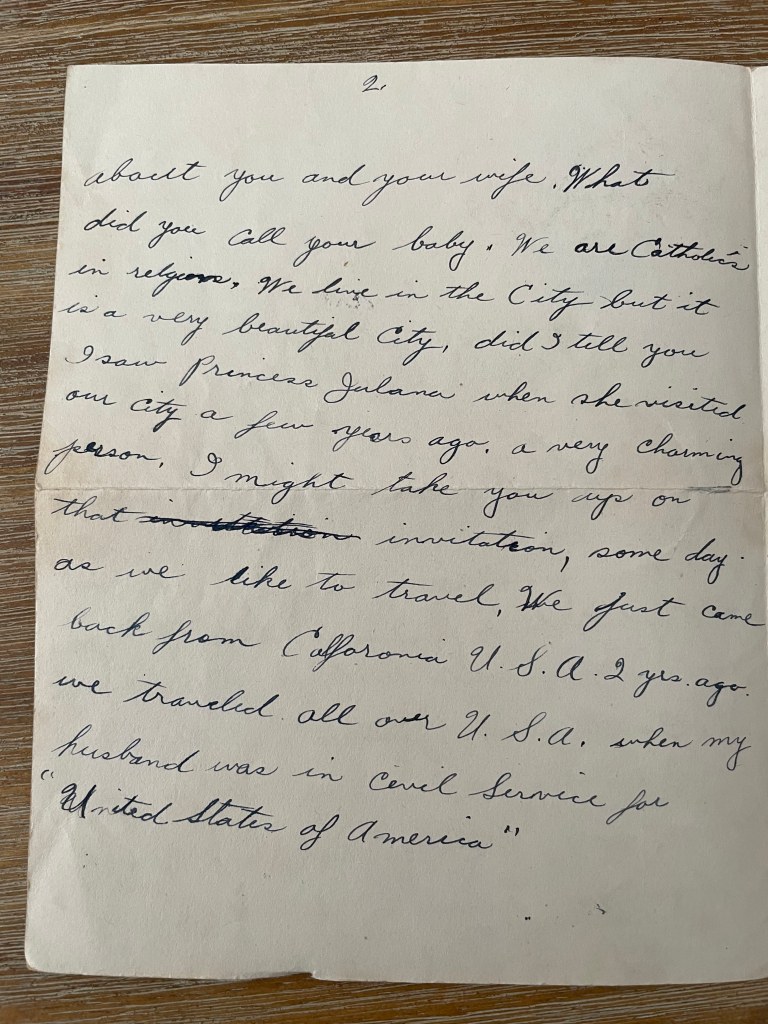 2.
about you and your wife. What
did you call your baby. We are Catholics
in relgions. We live in the City but it
is a very beautiful City, did I tell you
I saw Princess Julana when she visited
our city a few years ago. a very charming
person. I might take you up on
that invitation, some day.
as we like to travel, We just came
back from Calforonia U. S. A. 2 yrs. ago.
we traveled all over U. S. A. when my
husband was in Cevil Service for
"United States of America"